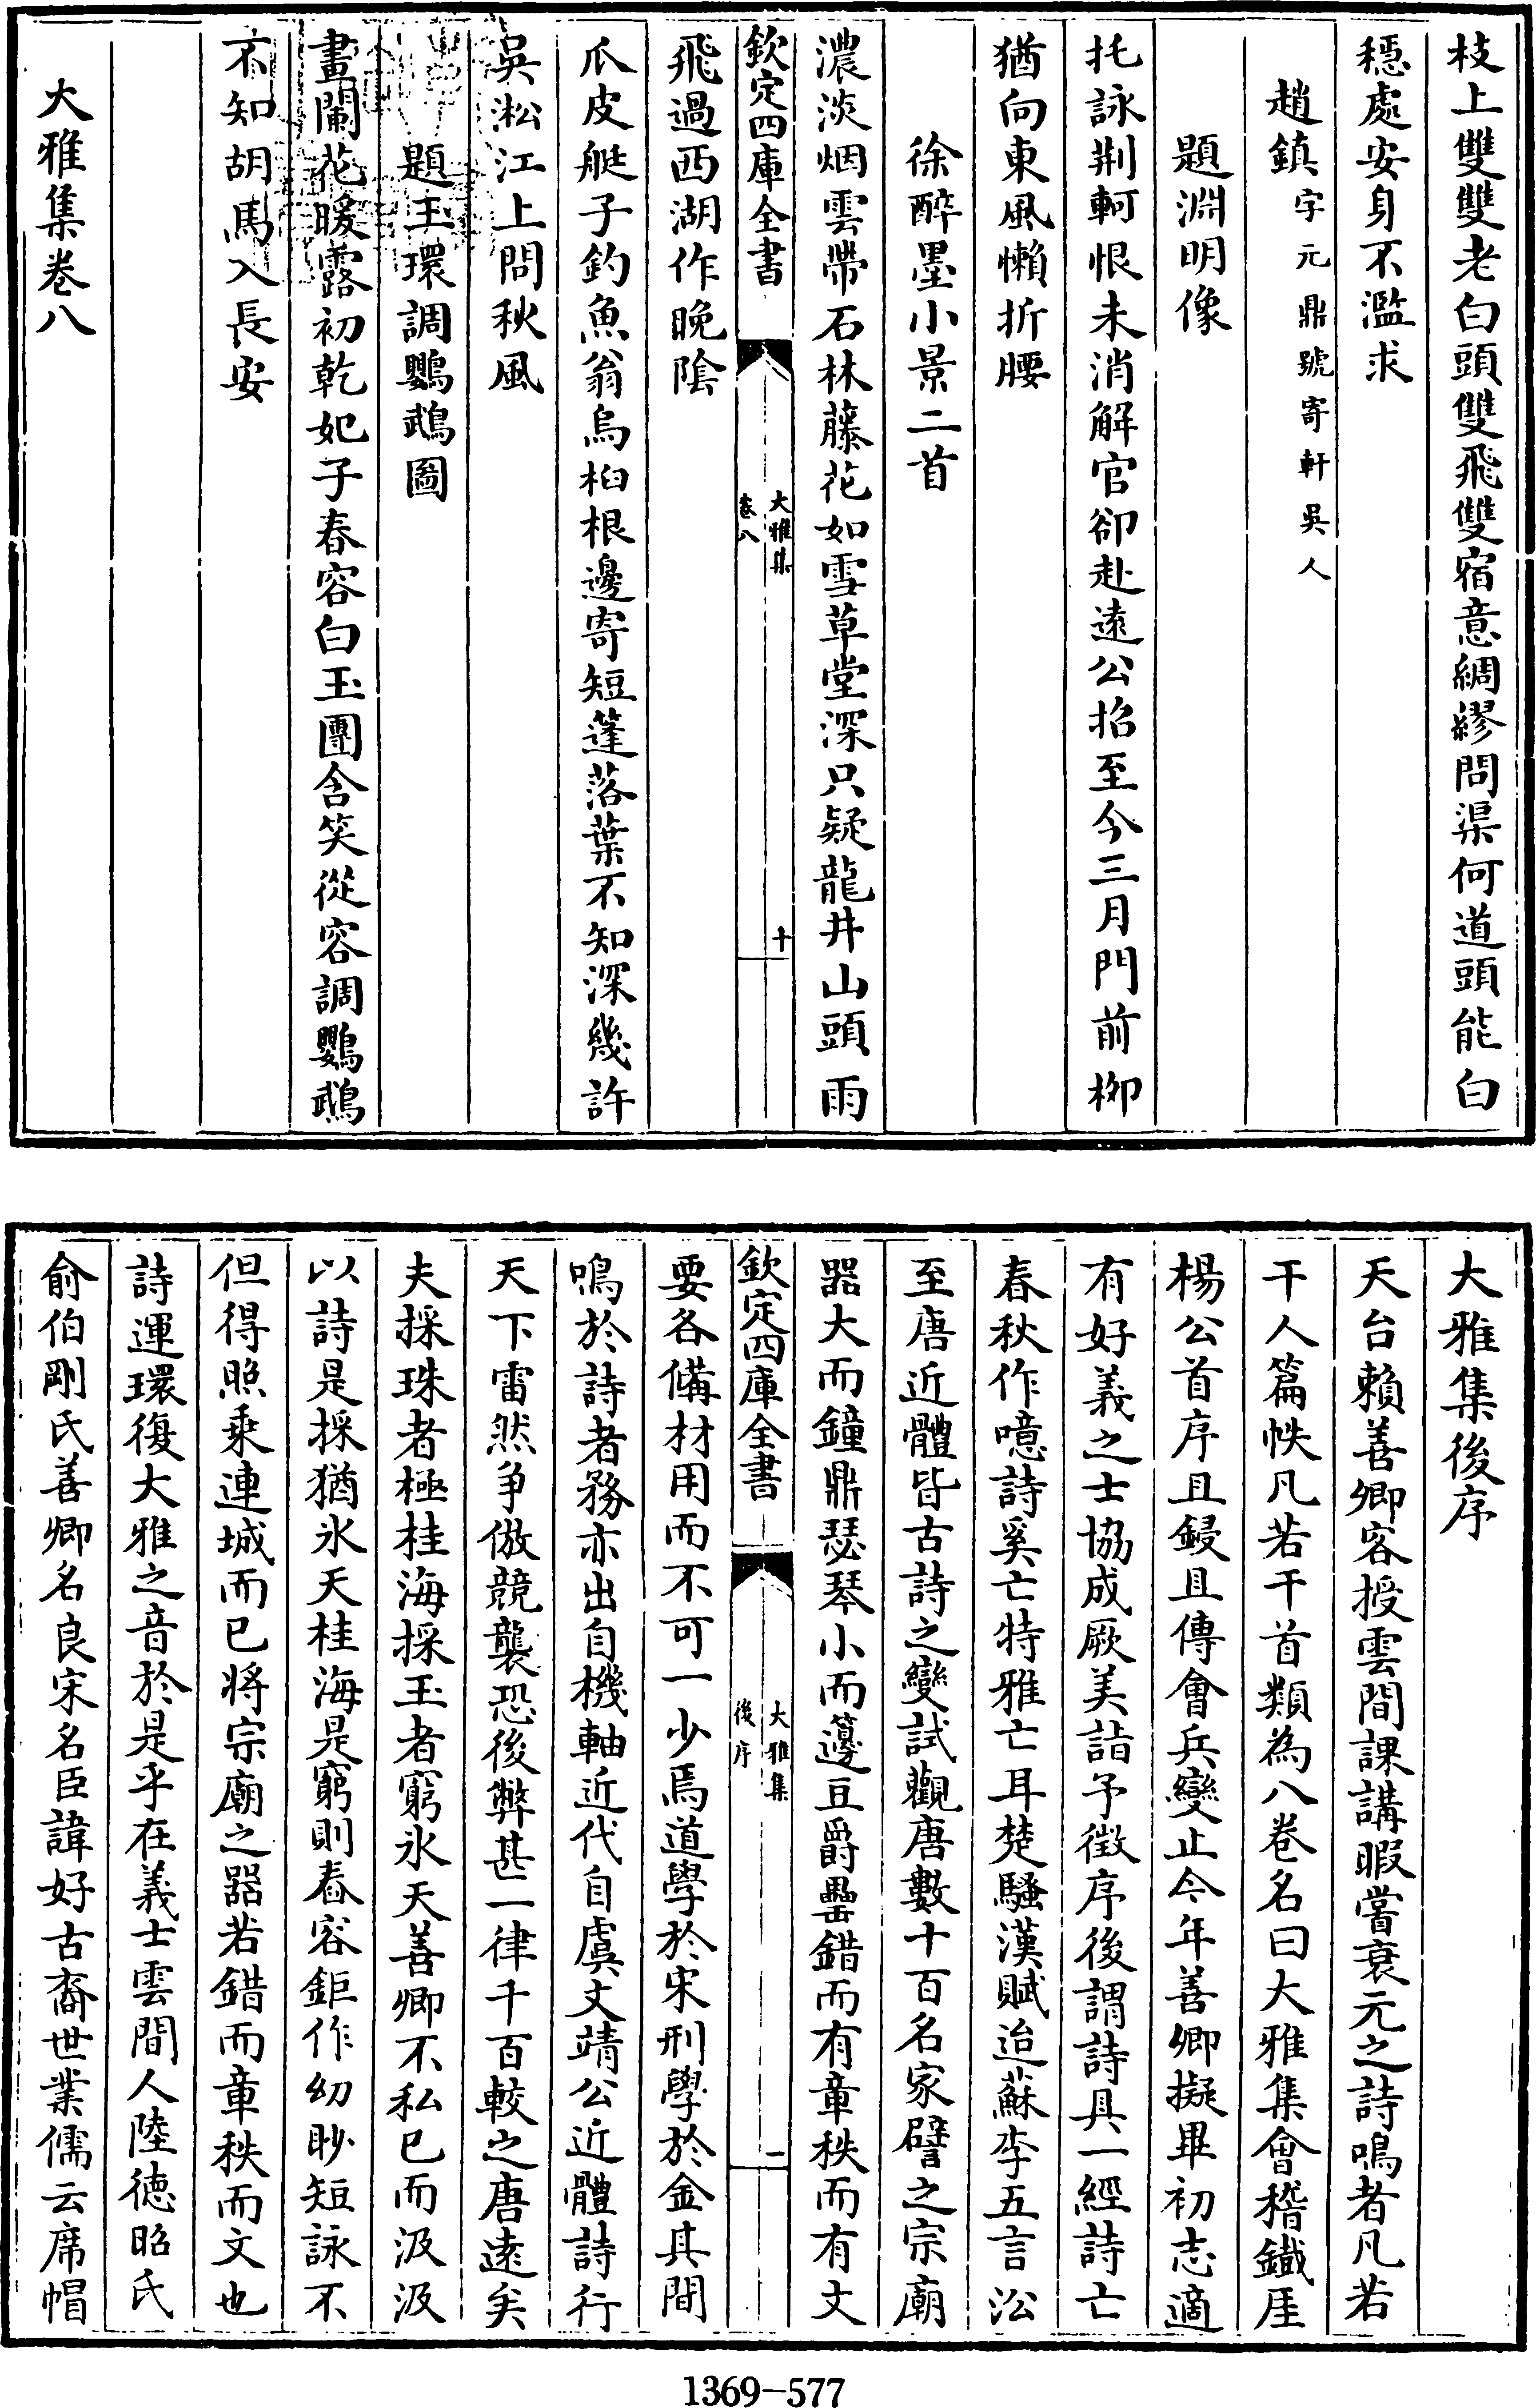 枝上雙雙老白頭雙飛雙宿意綢繆問渠何道頭能白
穩處安身不濫求
趙鎮字元鼎號寄軒吳人
題淵明像
托詠荆軻恨未消解官卻赴逺公招至今三月門前柳
猶向東風懶折腰
徐醉墨小景二首
濃淡烟雲帶石林藤花如雪草堂深只疑龍井山頭雨
欽定四庫全書
大雅集
卷八
十
飛過西湖作晚隂
瓜皮艇子釣魚翁烏桕根邊寄短蓬落葉不知深幾許
吳淞江上問秋風
題玉環調鸚鵡圖
畫闌花暖露初乾妃子春容白玉團含笑從容調鸚鵡
不知胡馬入長安
大雅集卷八
大雅集後序
天台賴善卿客授雲間課講暇嘗裒元之詩鳴者凡若
干人篇帙凡若干首類為八卷名曰大雅集會稽鐵厓
楊公首序且鋟且傳會兵變止今年善卿擬畢初志適
有好義之士協成厥美詣予徵序後謂詩具一經詩亡
春秋作噫詩奚亡特雅亡耳楚騷漢賦迨蘇李五言㳂
至唐近體皆古詩之變試觀唐數十百名家譬之宗廟
器大而鐘鼎瑟琴小而籩豆爵罍錯而有章秩而有文
欽定四庫全書
大雅集
後序
一
要各備材用而不可一少焉道學於宋刑學於金其間
鳴於詩者務亦出自機軸近代自虞文靖公近體詩行
天下雷然争倣競襲恐後弊甚一律千百較之唐逺矣
夫採珠者極桂海採玉者窮氷天善卿不私已而汲汲
以詩是採猶氷天桂海是窮則舂容鉅作幼眇短詠不
但得照乗連城而已將宗廟之器若錯而章秩而文也
詩運環復大雅之音於是乎在義士雲間人陸德昭氏
俞伯剛氏善卿名良宋名臣諱好古裔世業儒云席帽
1369-577